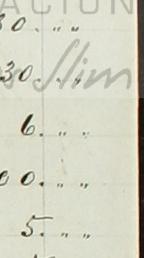 ACION
30. „ „
30. „ „
Slim
6. „ „
00. „ „
5. „ „